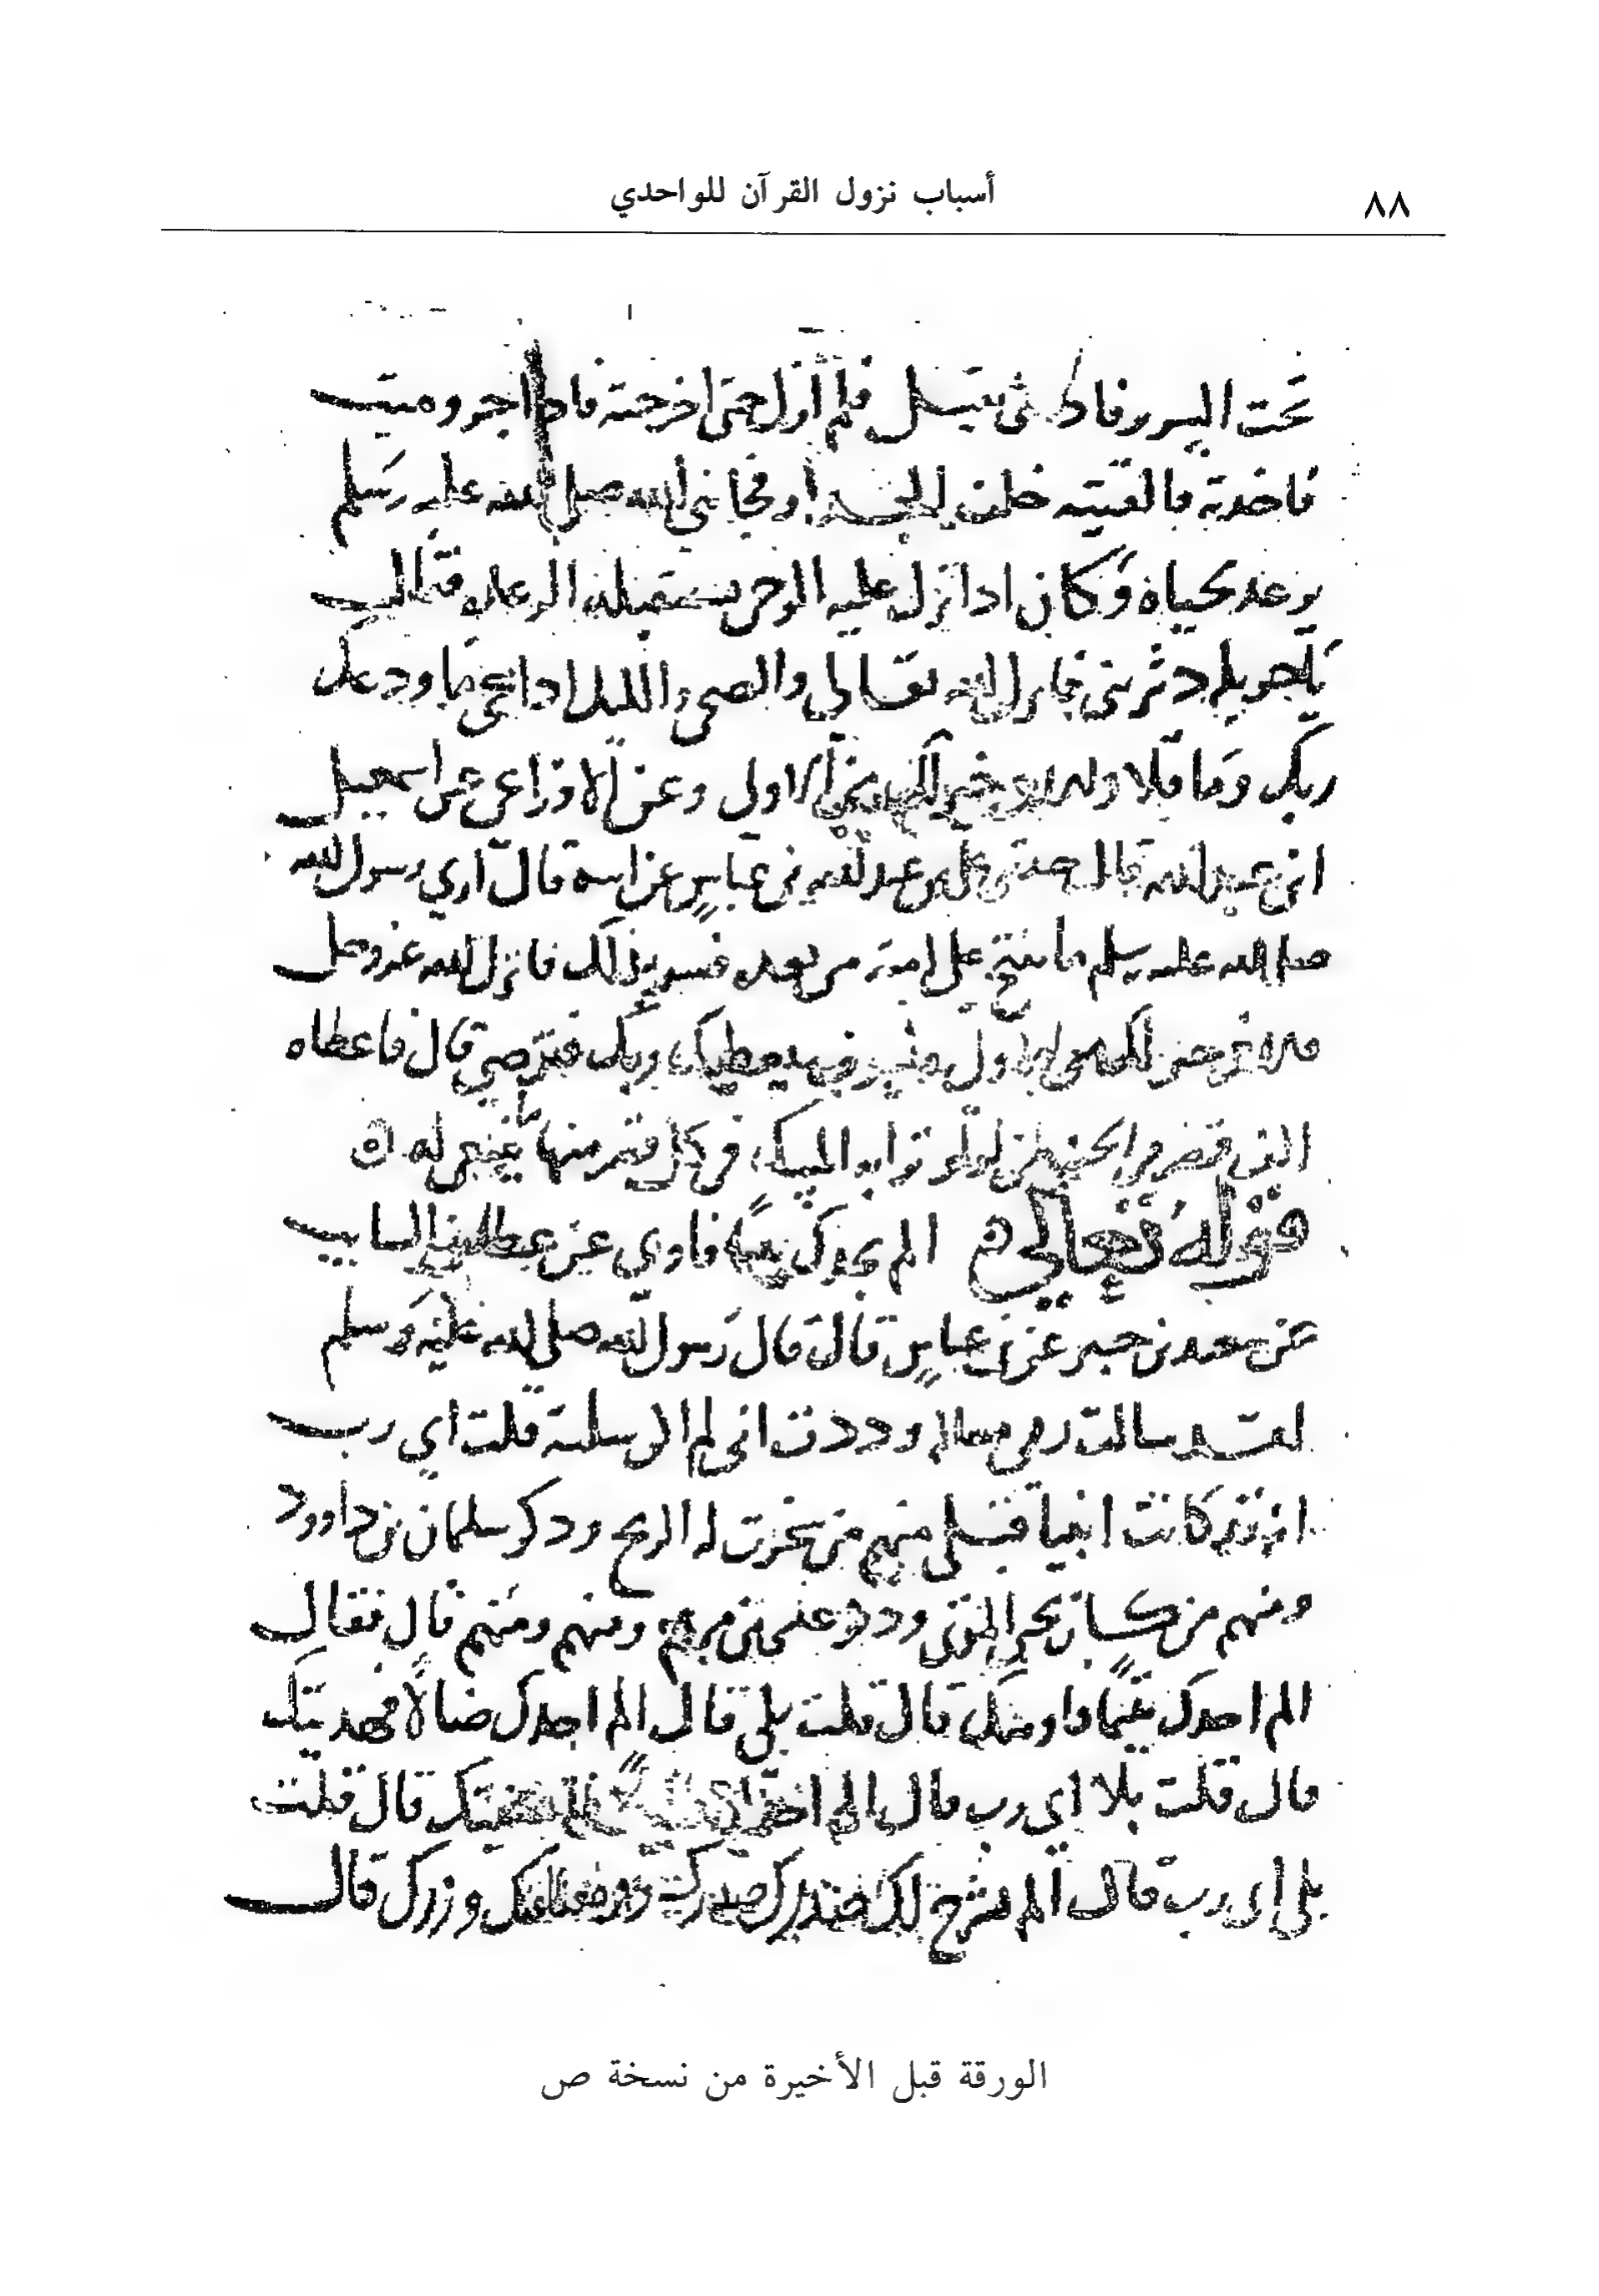 ٨٨
أسباب نزول القرآن للواحدي
تحت السرير فاذا شي ثقيل فلم أزل حتى اخرجته فاذا جرو ميت
فاخذته فالقيته خلف الجدار فجا نبي الله صلى الله عليه وسلم
يرعد لحياه وكان اذا نزل عليه الوحي استقبلته الرعده فقال
يا خويله دثريني فانزل الله تعالى والضحى والليل اذا سجى ما ودعك
ربك وما قلا وللاخره خير لك من الاولى وعن الاوزاعي عن اسمعيل
ابن عبيد الله قال حدثني علي بن عبد الله بن عباس عن ابيه قال اري رسول الله
صلى الله عليه وسلم ما يفتح على امته من بعده فسر بذلك فانزل الله عز وجل
وللاخره خير لك من الاولى ولسوف يعطيك ربك فترضى قال فاعطاه
الف قصر في الجنه من لولو ترابه المسك في كل قصر منها ما ينبغي له ه
قوله تعالى ه الم يجدك يتيمًا فاوى عن عطا بن السايب
عن سعيد بن جبير عن بن عباس قال قال رسول الله صلى الله عليه وسلم
لقد سالت ربي مساله وددت اني لم اكن سالته قلت اي رب
انه قد كانت انبيا قبلي منهم من سخرت له الريح وذكر سلمان بن داوود
ومنهم من كان يحي الموتى وذكر عيسى بن مريم ومنهم ومنهم قال فقال
الم اجدك يتيمًا فاويتك قال قلت بلى قال الم اجدك ضالًا فهديتك
قال قلت بلا اي رب قال الم اجدك عايلًا فاغنيتك قال قلت
بلى اي رب قال الم نشرح لك صدرك ووضعنا عنك وزرك قال
الورقة قبل الأخيرة من نسخة ص